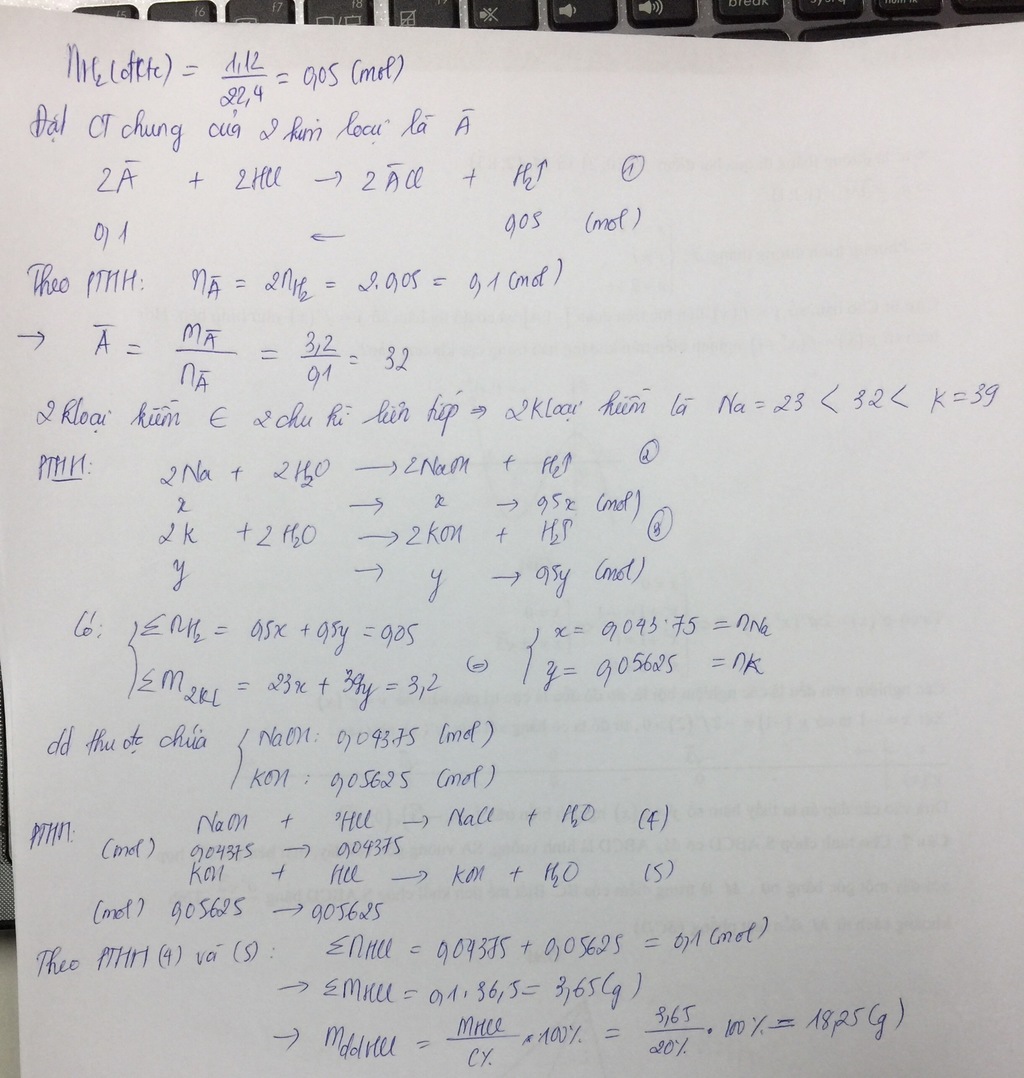 nH₂(đktc) = 1,12/22,4 = 0,05 (mol)
Đặt CT chung của 2 kim loại là Ā
2Ā + 2HCl → 2ĀCl + H₂↑ ①
0,1 ← 0,05 (mol)
Theo PTHH: nĀ = 2nH₂ = 2.0,05 = 0,1 (mol)
→ Ā = mĀ/nĀ = 3,2/0,1 = 32
2 kloại kiềm ∈ 2 chu kì liên tiếp ⇒ 2 kloại kiềm là Na = 23 < 32 < K = 39
PTHH: 2Na + 2H₂O → 2NaOH + H₂↑ ②
x → x → 0,5x (mol)
2K + 2H₂O → 2KOH + H₂↑ ③
y → y → 0,5y (mol)
Có: { ΣnH₂ = 0,5x + 0,5y = 0,05 ⇔ { x = 0,04375 = nNa
Σm2KL = 23x + 39y = 3,2 y = 0,05625 = nK
dd thu đc chứa { NaOH: 0,04375 (mol)
KOH : 0,05625 (mol)
PTHH: NaOH + HCl → NaCl + H₂O (4)
(mol) 0,04375 → 0,04375
KOH + HCl → KOH + H₂O (5)
(mol) 0,05625 → 0,05625
Theo PTHH (4) và (5): ΣnHCl = 0,04375 + 0,05625 = 0,1 (mol)
→ ΣmHCl = 0,1.36,5 = 3,65(g)
→ mddHCl = mHCl/C% × 100% = 3,65/20% . 100% = 18,25 (g)